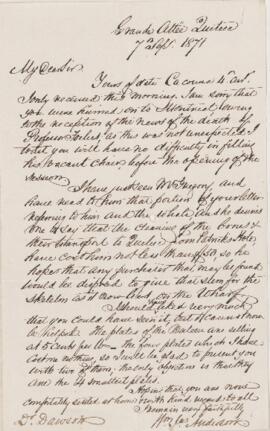 Grande Allée Quebec
7th Sept. 1871
My Dear Sir
Yours of date Cacouna 4th
I only received this morning. I am sorry that
you were hurried on to Montreal owing
to the reception of the news of the death of
Professor as was not unexpected I
trust you will have no difficulty in filling
his vacant Chair, before the opening of the
session
I have just seen Mr Gregory and
have read to him that portion of your letter
referring to him and the whale, and he desires
me to say that the cleaning of the bones &
their transport to Quebec from
have cost him not less than $50, so he
hopes that any purchaser that may be found
would be disposed to give that sum for the
skeleton as it now is on the Wharf
I should liked very much
that you could have seen it, but it cannot now
be helped. The plates of the Baleen are selling
at 5 cents per lb — the four plates which I have
cost me nothing, so I will be glad to present you
with two of them, the only objection is that they
are the 4 smallest plates
Hoping that you are now
comfortably settled at home with kind regards to all
I remain very faithfully
Dr. Dawson